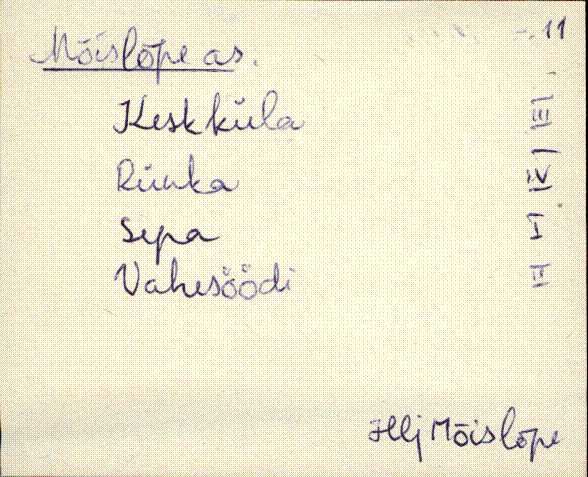 11
Mõislõpe as.
Keskküla III
Rünka IV
Sepa I
Vahesöödi II
Hlj Mõislõpe